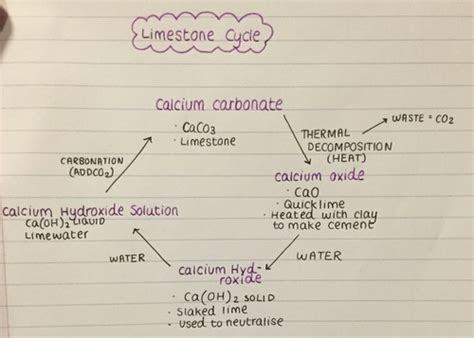 Limestone Cycle
Calcium carbonate
· CaCO3
· Limestone
THERMAL
DECOMPOSITION
(HEAT)
WASTE = CO2
calcium oxide
· CaO
· Quicklime
· Heated with clay
to make cement
WATER
calcium Hyd-
roxide
· Ca(OH)2 SOLID
· Slaked lime
· used to neutralise
WATER
Calcium Hydroxide Solution
Ca(OH)2 LIQUID
Limewater
CARBONATION
(ADDCO2)